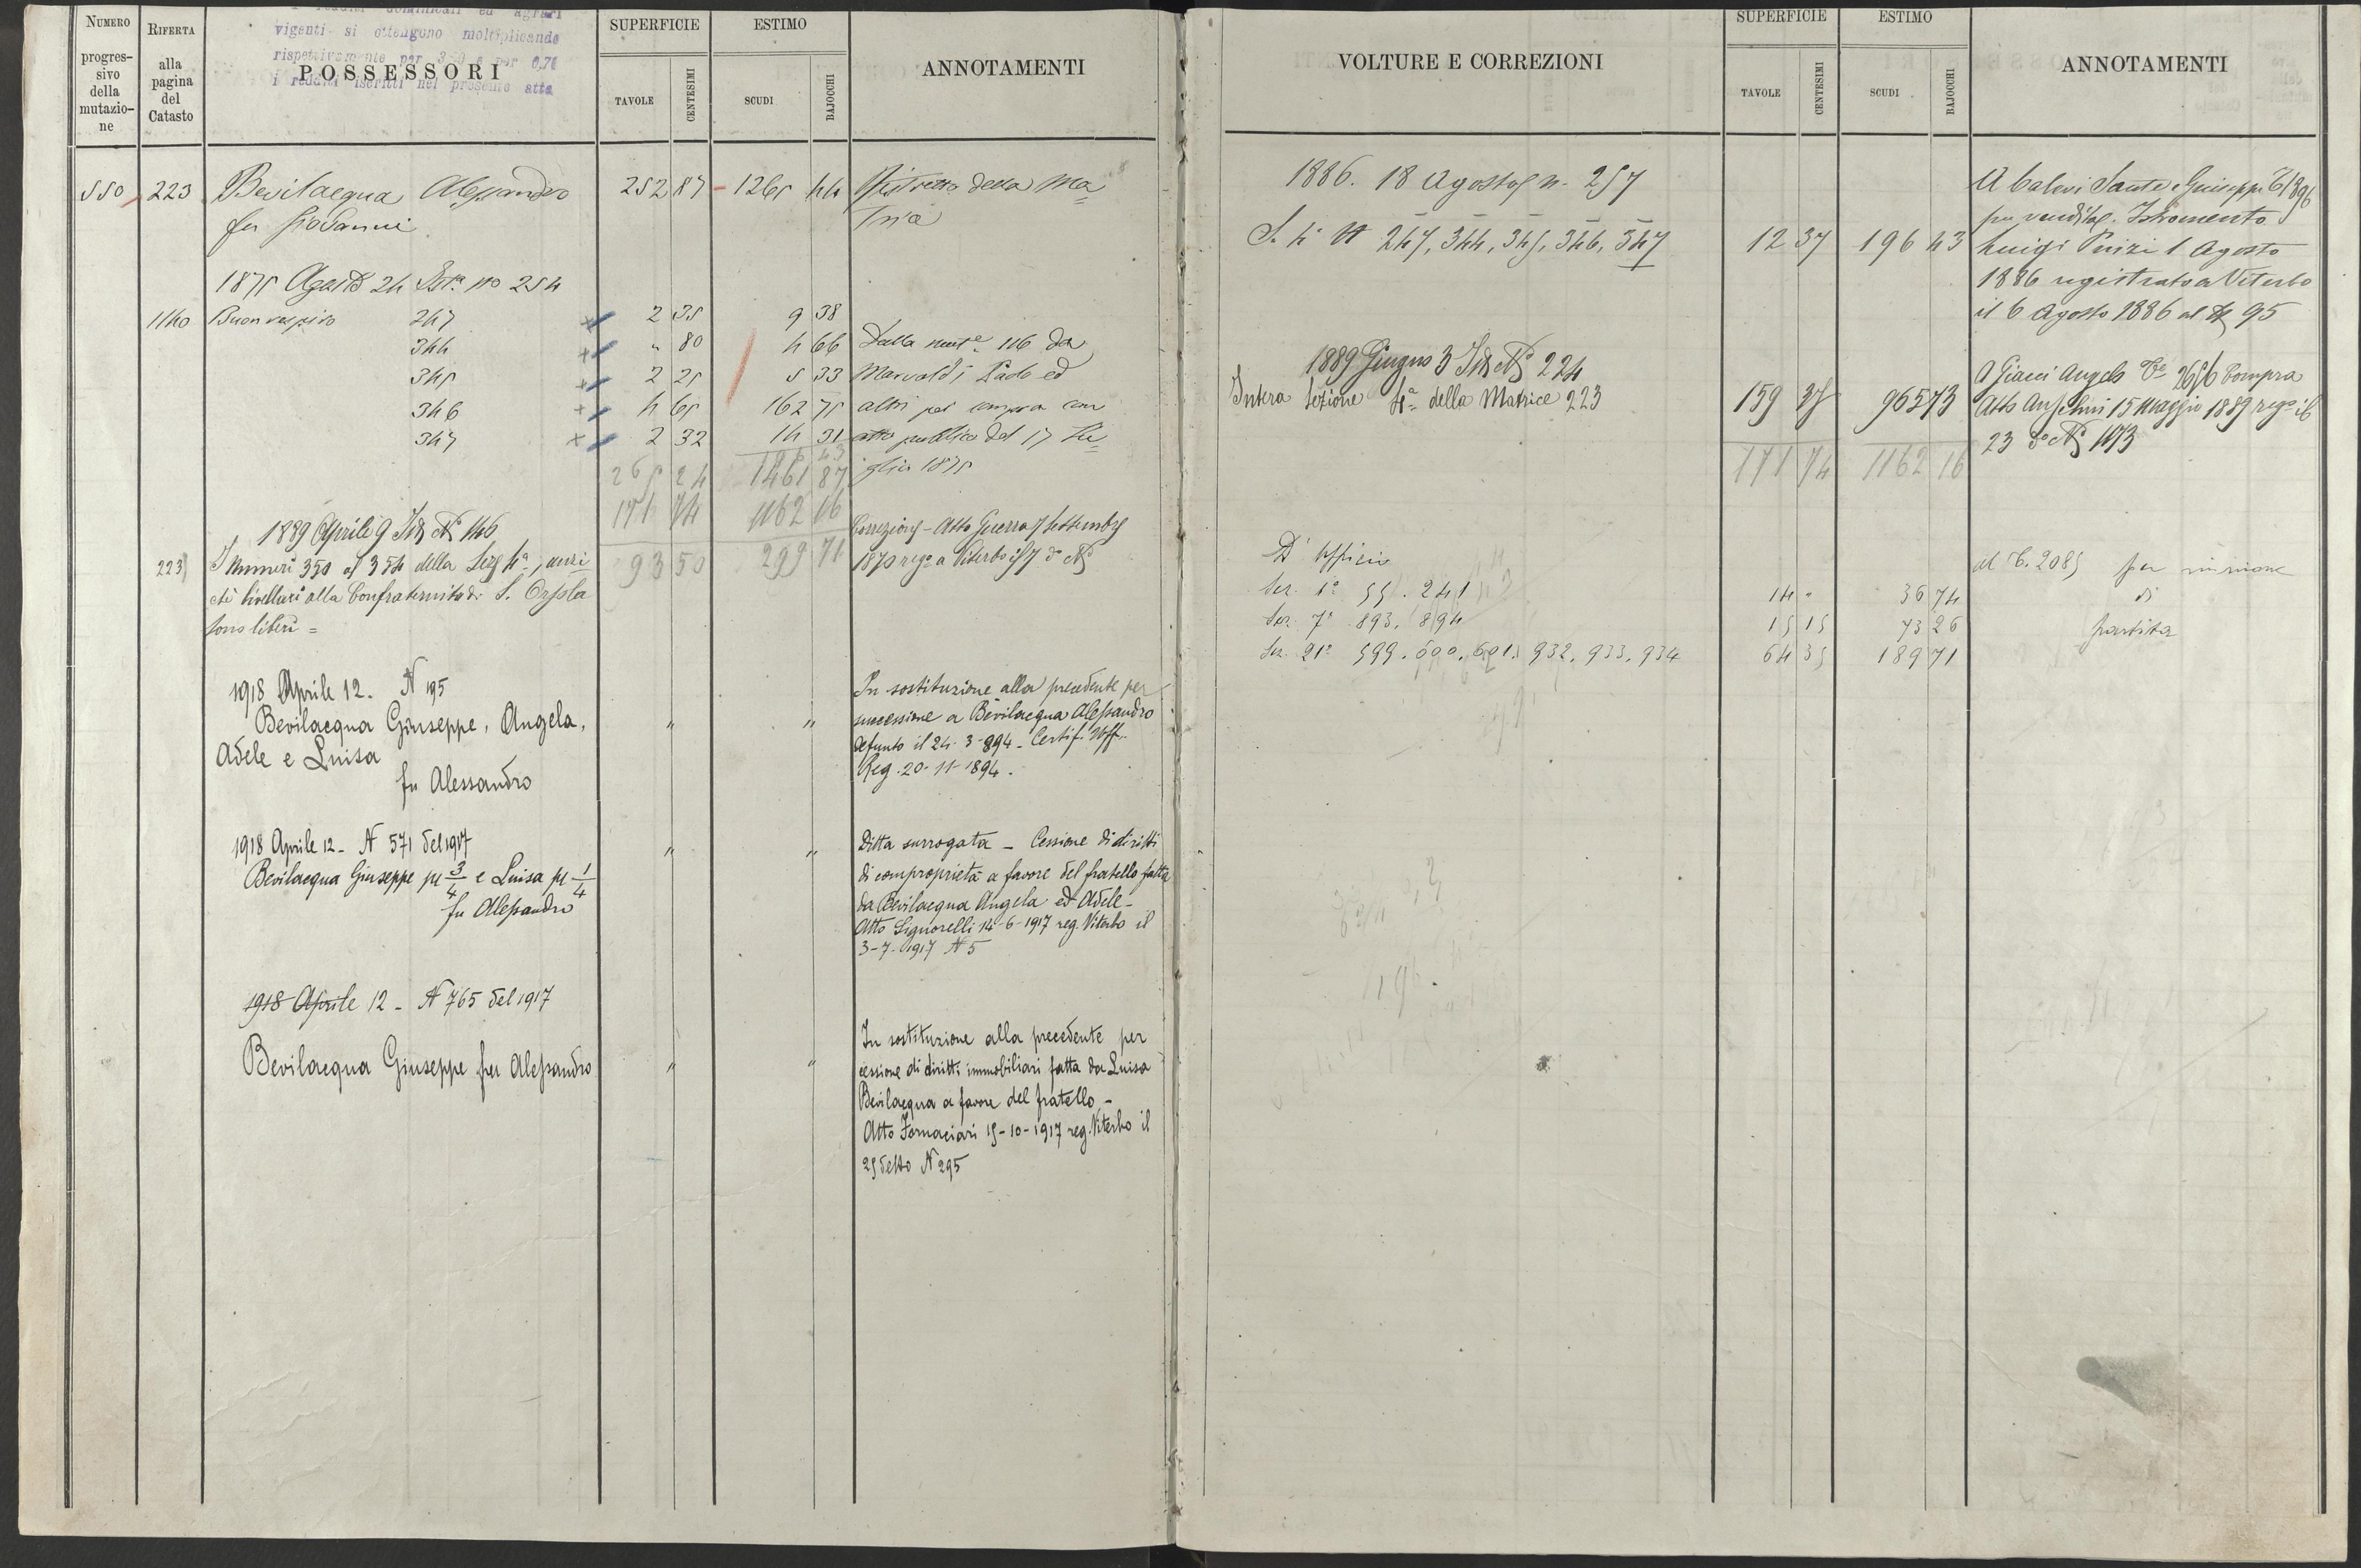 NUMERO
progres-
sivo
della
mutazio-
ne
RIFERTA
alla
pagina
del
Catasto
dominicali ed agrari
vigenti si ottengono moltiplicando
rispettivamente per
i redditi iscritti nel presente atto
POSSESSORI
SUPERFICIE
TAVOLE
CENTESIMI
ESTIMO
SCUDI
BAJOCCHI
ANNOTAMENTI
550 223 Bevilacqua Alessandro 252 87 1265 44 Ristretto della Ma=
fu Giovanni trice
1875 Agosto 24 Ist.a no 254
1140 Buonrespiro 247 2 35 9 38
344 " 80 4 66 Dalla mut.e 116 da
345 2 25 5 33 Marvaldi Paolo ed
346 4 65 162 75 altri per compra con
347 2 32 14 31 atto pubblico del 17 Lu=
196 43
265 24 1461 87 glio 1875
171 74 1162 16
1889 Aprile 9 Ist. No 146 Correzione - Atto Guerra 7 Settembre
93 50 299 71 1870 reg.o a Viterbo il 7 do No
223 I numeri 350 al 354 della Sez 4a, anzi
chè livellari alla Confraternita di S. Orsola
sono liberi =
1918 Aprile 12. N 195
Bevilacqua Giuseppe, Angela,
Adele e Luisa
fu Alessandro
" "
In sostituzione alla precedente per
successione a Bevilacqua Alessandro
defunto il 24-3-894 - Certif. Uff.
Reg. 20-11-1894.
1918 Aprile 12 - N 571 del 1917
Bevilacqua Giuseppe pr 3/4 e Luisa pr 1/4
fu Alessandro
" "
Ditta surrogata - Cessione di diritti
di comproprietà a favore del fratello fatta
da Bevilacqua Angela ed Adele -
Atto Signorelli 14-6-1917 reg. Viterbo il
3-7-1917 N 5
1918 Aprile 12 - N 765 del 1917
Bevilacqua Giuseppe fu Alessandro
" "
In sostituzione alla precedente per
cessione di diritti immobiliari fatta da Luisa
Bevilacqua a favore del fratello -
Atto Fornaciari 15-10-1917 reg. Viterbo il
25 detto N 295
VOLTURE E CORREZIONI
SUPERFICIE
TAVOLE
CENTESIMI
ESTIMO
SCUDI
BAJOCCHI
ANNOTAMENTI
1886. 18 Agosto n. 257
S. 4a N 247, 344, 345, 346, 347 12 37 196 43
A Calevi Sante e Giuseppe
per vendita. Istromento
Luigi 1 Agosto
1886 registrato a Viterbo
il 6 Agosto 1886 al N 95
1889 Giugno 3 Ist. No 224
Intera Sezione 4a della Matrice 223 159 37 965 73
171 74 1162 16
A Giacci Angelo Ce 2656 Compra
Atto Anselmi 15 Maggio 1889 reg.o il
23 do No 1073
D'Ufficio
Sez. 1a 55. 241 14 - 36 74
Sez. 7a 893. 894 15 15 73 26
Sez. 21a 599. 600. 601. 932. 933. 934 64 35 189 71
al C. 2085 per riunione
di
partita